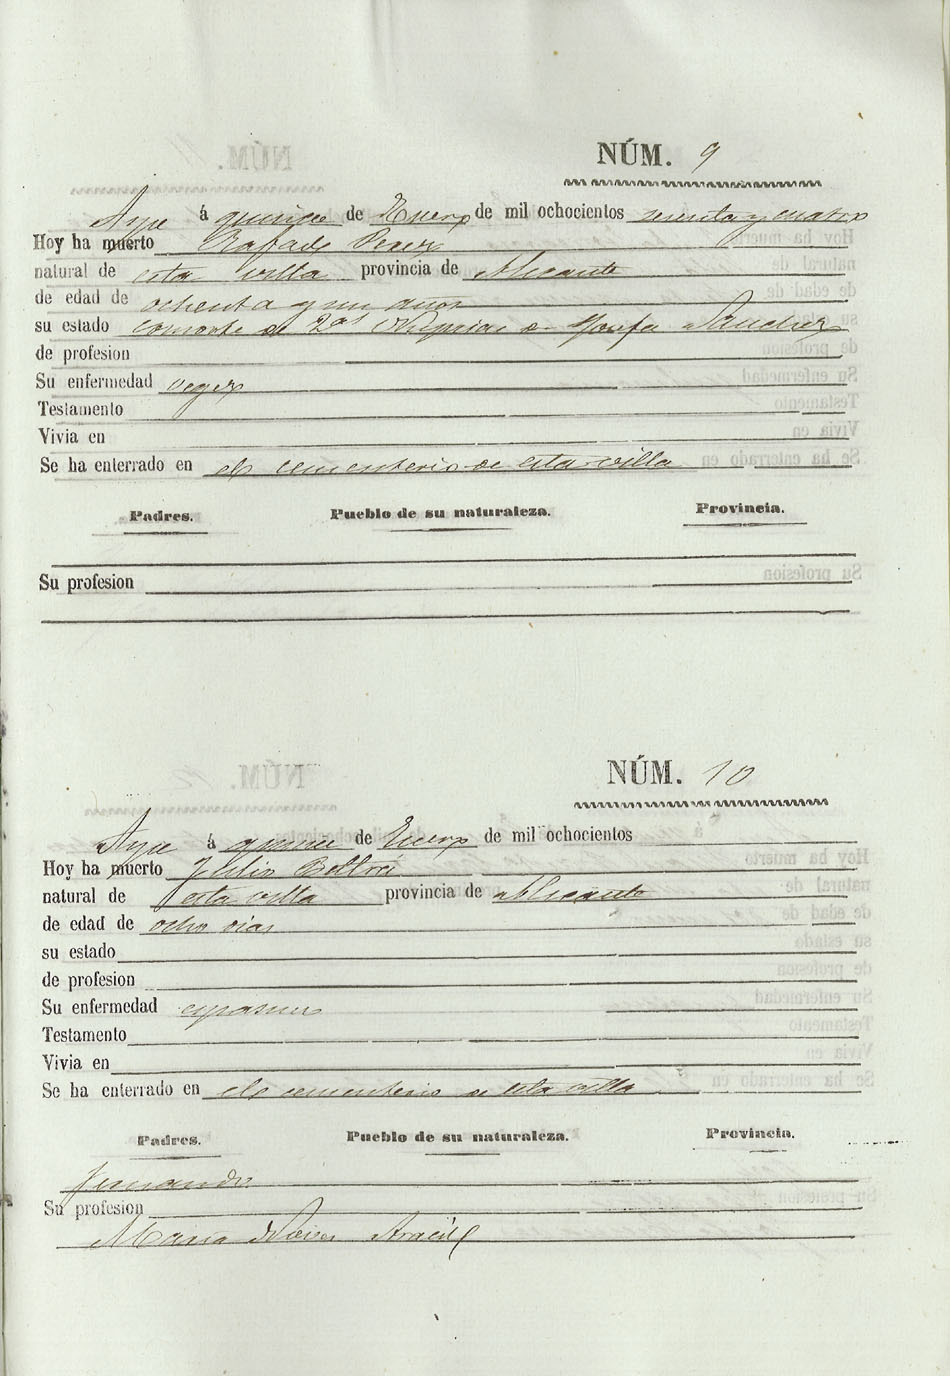 NÚM. 9
á quince de Enero de mil ochocientos sesenta y cuatro
Hoy ha muerto Rafael Perez
natural de esta villa provincia de Alicante
de edad de ochenta y un años
su estado consorte de 2as Nupcias de Josefa Sanchez
de profesion
Su enfermedad vegez
Testamento
Vivia en
Se ha enterrado en el cementerio de esta villa
Padres. Pueblo de su naturaleza. Provincia.
Su profesion
NÚM. 10
á quince de Enero de mil ochocientos
Hoy ha muerto Beltrá
natural de esta villa provincia de Alicante
de edad de ocho dias
su estado
de profesion
Su enfermedad
Testamento
Vivia en
Se ha enterrado en el cementerio de esta villa
Padres. Pueblo de su naturaleza. Provincia.
Fernando
Su profesion
Maria Aracil